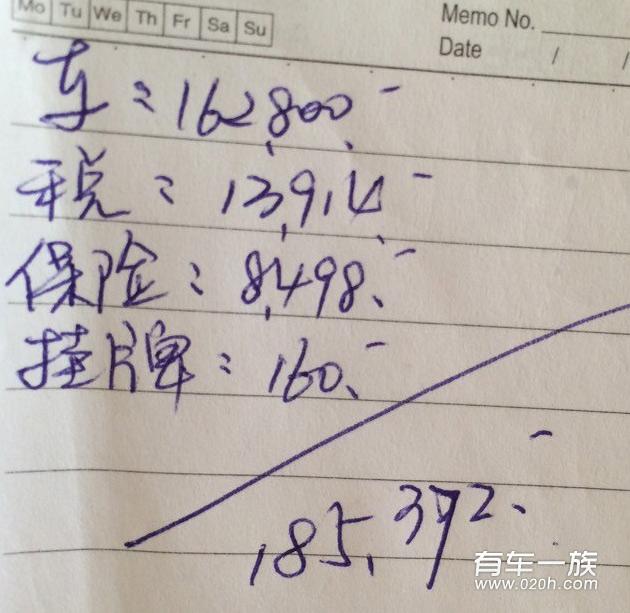 Mo Tu We Th Fr Sa Su
Memo No.
Date / /
车：162,800.-
税：13,914.-
保险：8,498.-
挂牌：160.-
185,372.-
有车一族
www.020h.com